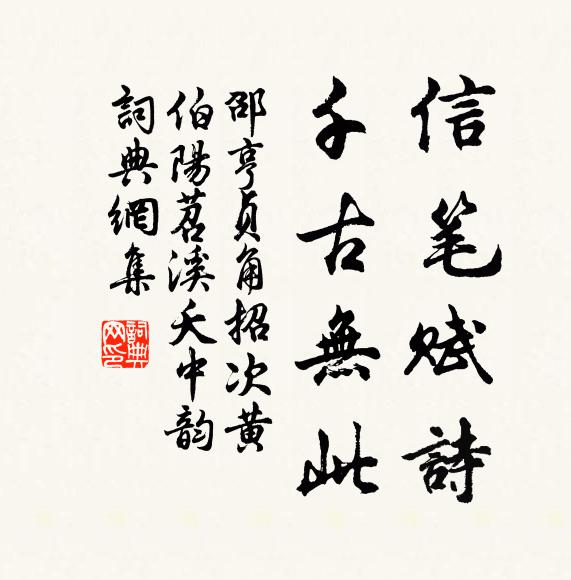 信笔赋詩
千古無此
邵亨貞角招次黄
伯陽苕溪夭中韵
詞典網集
詞典网印